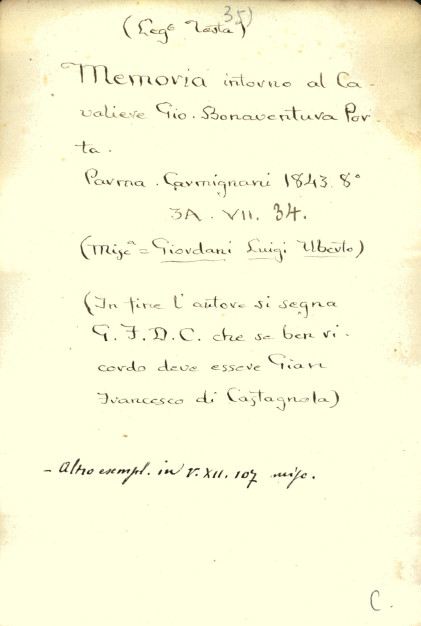 35)
(Leg.e Testa)
Memoria intorno al Ca-
valiere Gio. Bonaventura Por-
ta.
Parma. Carmignani 1843. 8°
3A. VII. 34.
(Misc.a = Giordani Luigi Uberto)
(In fine l'autore si segna
G. F. D. C. che se ben ri-
cordo deve essere Gian
Francesco di Castagnola)
- Altro esempl. in V. XII. 107 misc.
C.